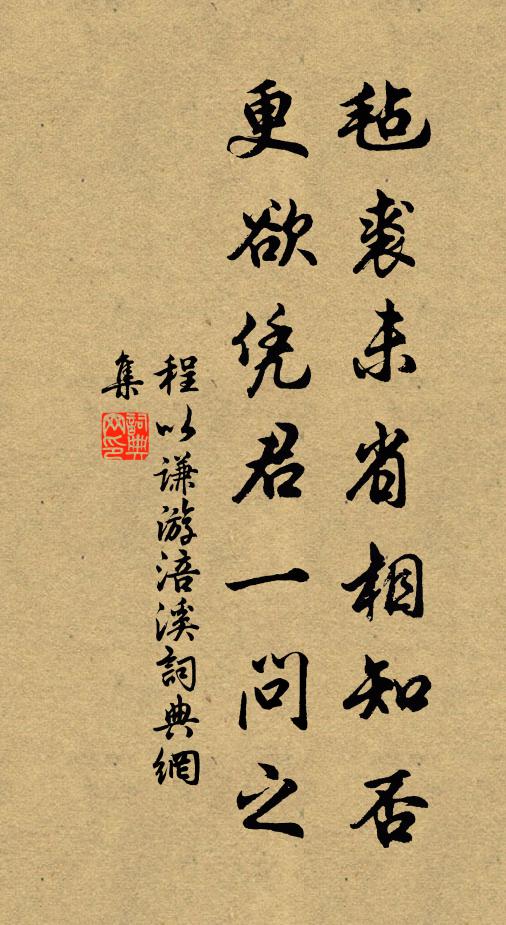 毡裘未省相知否
更欲凭君一问之
程以谦游涪溪詞典網
集
詞典網印